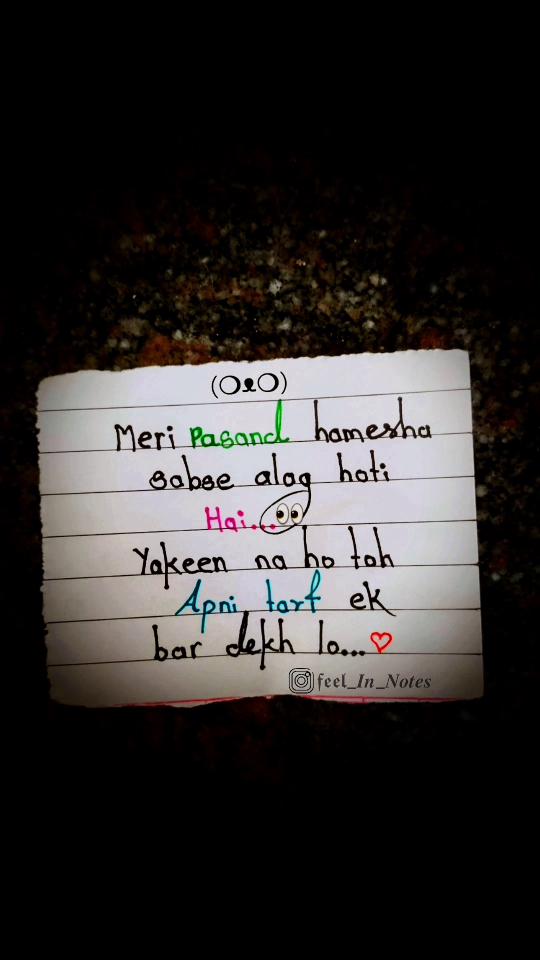 (❍ᴥ❍)
Meri Pasand hamesha
sabse alag hoti
Hai...👀
Yakeen na ho toh
Apni tarf ek
bar dekh lo...♡
feel_In_Notes